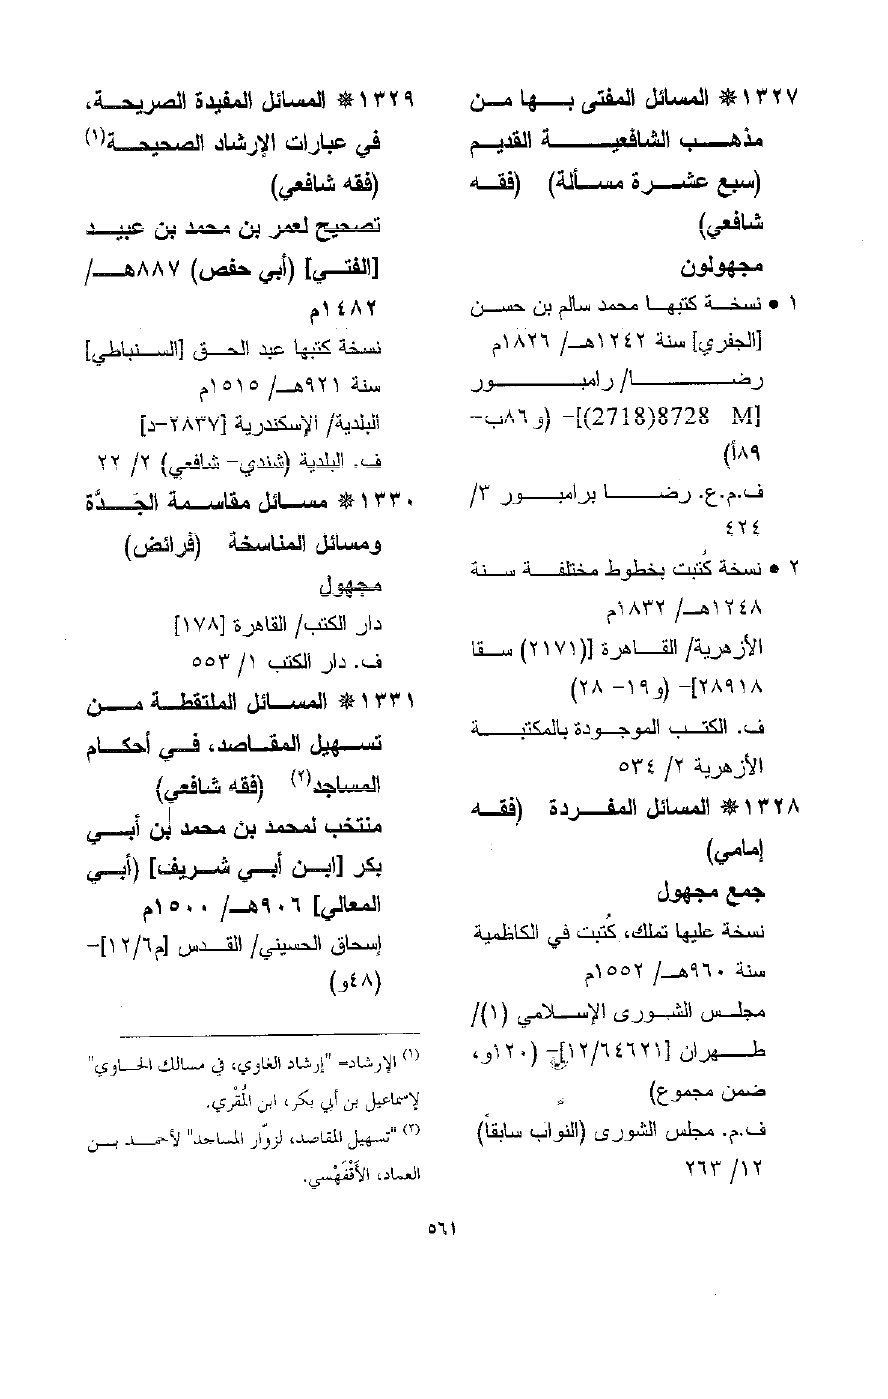 ١٣٢٧ * المسائل المفتى بها من
مذهب الشافعية القديم
(سبع عشرة مسألة) (فقه
شافعي)
مجهولون
١ • نسخة كتبها محمد سالم بن حسن
[الجفري] سنة ١٢٤٢هـ/ ١٨٢٦م
رضا/ رامبور
[M 8728(2718)]- (و٨٦ب-
٨٩أ)
ف.م.ع. رضا برامبور ٣/
٤٢٤
٢ • نسخة كُتبت بخطوط مختلفة سنة
١٢٤٨هـ/ ١٨٣٢م
الأزهرية/ القاهرة [(٢١٧١) سقا
٢٨٩١٨]- (و١٩- ٢٨)
ف. الكتب الموجودة بالمكتبة
الأزهرية ٢/ ٥٣٤
١٣٢٨ * المسائل المفردة (فقه
إمامي)
جمع مجهول
نسخة عليها تملك، كُتبت في الكاظمية
سنة ٩٦٠هـ/ ١٥٥٢م
مجلس الشورى الإسلامي (١)/
طهران [١٢/٦٤٦٢١]- (١٢٠و،
ضمن مجموع)
ف.م. مجلس الشورى (النواب سابقاً)
١٢/ ٢٦٣
١٣٢٩ * المسائل المفيدة الصريحة،
في عبارات الإرشاد الصحيحة(١)
(فقه شافعي)
تصحيح لعمر بن محمد بن عبيد
[الفتي] (أبي حفص) ٨٨٧هـ/
١٤٨٢م
نسخة كتبها عبد الحق [السنباطي]
سنة ٩٢١هـ/ ١٥١٥م
البلدية/ الإسكندرية [٢٨٣٧-د]
ف. البلدية (شندي- شافعي) ٢/ ٢٢
١٣٣٠ * مسائل مقاسمة الجَدَّة
ومسائل المناسخة (فرائض)
مجهول
دار الكتب/ القاهرة [١٧٨]
ف. دار الكتب ١/ ٥٥٣
١٣٣١ * المسائل الملتقطة من
تسهيل المقاصد، في أحكام
المساجد(٢) (فقه شافعي)
منتخب لمحمد بن محمد بن أبي
بكر [ابن أبي شريف] (أبي
المعالي] ٩٠٦هـ/ ١٥٠٠م
إسحاق الحسيني/ القدس [م١٢/٦]-
(٤٨و)
(١) الإرشاد= "إرشاد الغاوي، في مسالك الحاوي"
لإسماعيل بن أبي بكر، ابن المُقْري.
(٢) "تسهيل المقاصد، لزوّار المساجد" لأحمد بن
العماد، الأَقْفَهْسي.
٥٦١